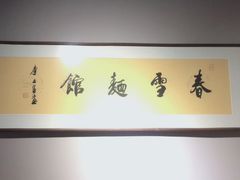 春雪麵館